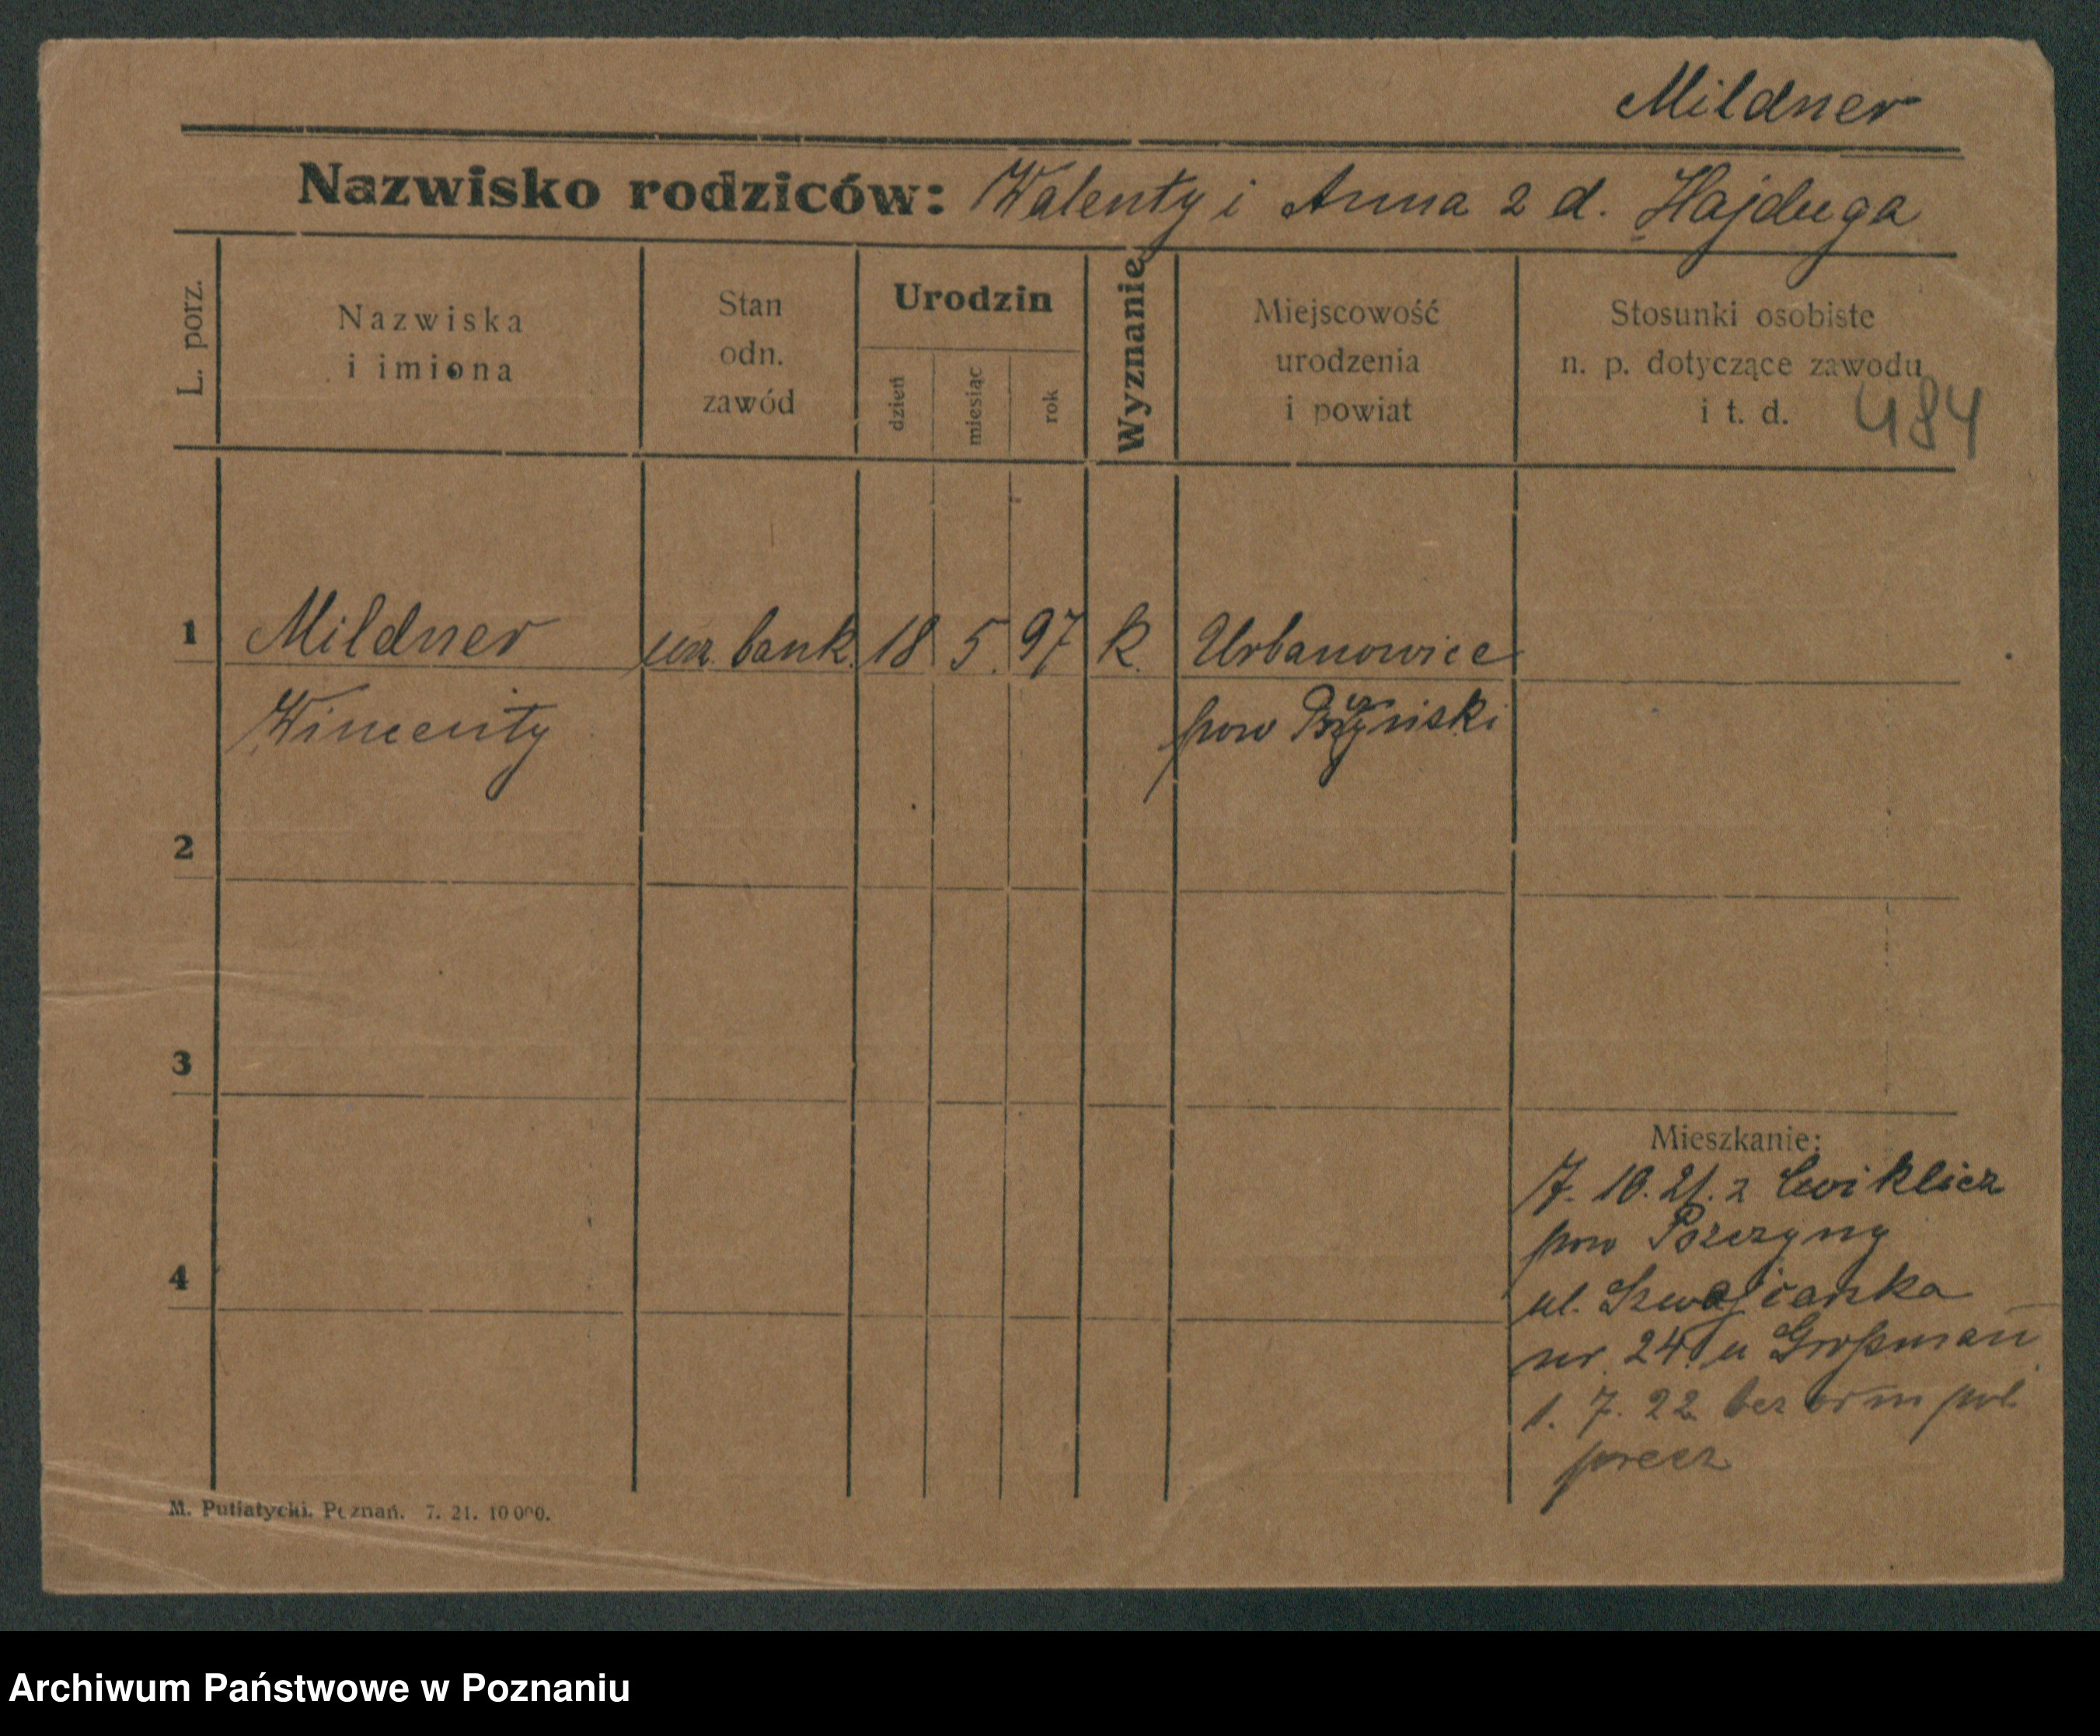 Mildner
Nazwisko rodziców: Walenty i Anna z d. Hajduga
L. porz.
Nazwiska
i imiona
Stan
odn.
zawód
Urodzin
dzień
miesiąc
rok
Wyznanie
Miejscowość
urodzenia
i powiat
Stosunki osobiste
n. p. dotyczące zawodu
i t. d.
484
1 Mildner urz. bank. 18 5. 97 k. Urbanowice
Wincenty pow
2
3
Mieszkanie:
7. 10. 21. z Cwiklicz
pow Pszczyny
4
ul. Szwajcarska
nr. 24. u Großman
1. 7. 22 bez pol
precz
M. Putiatycki. Poznań. 7. 21. 10000.
Archiwum Państwowe w Poznaniu